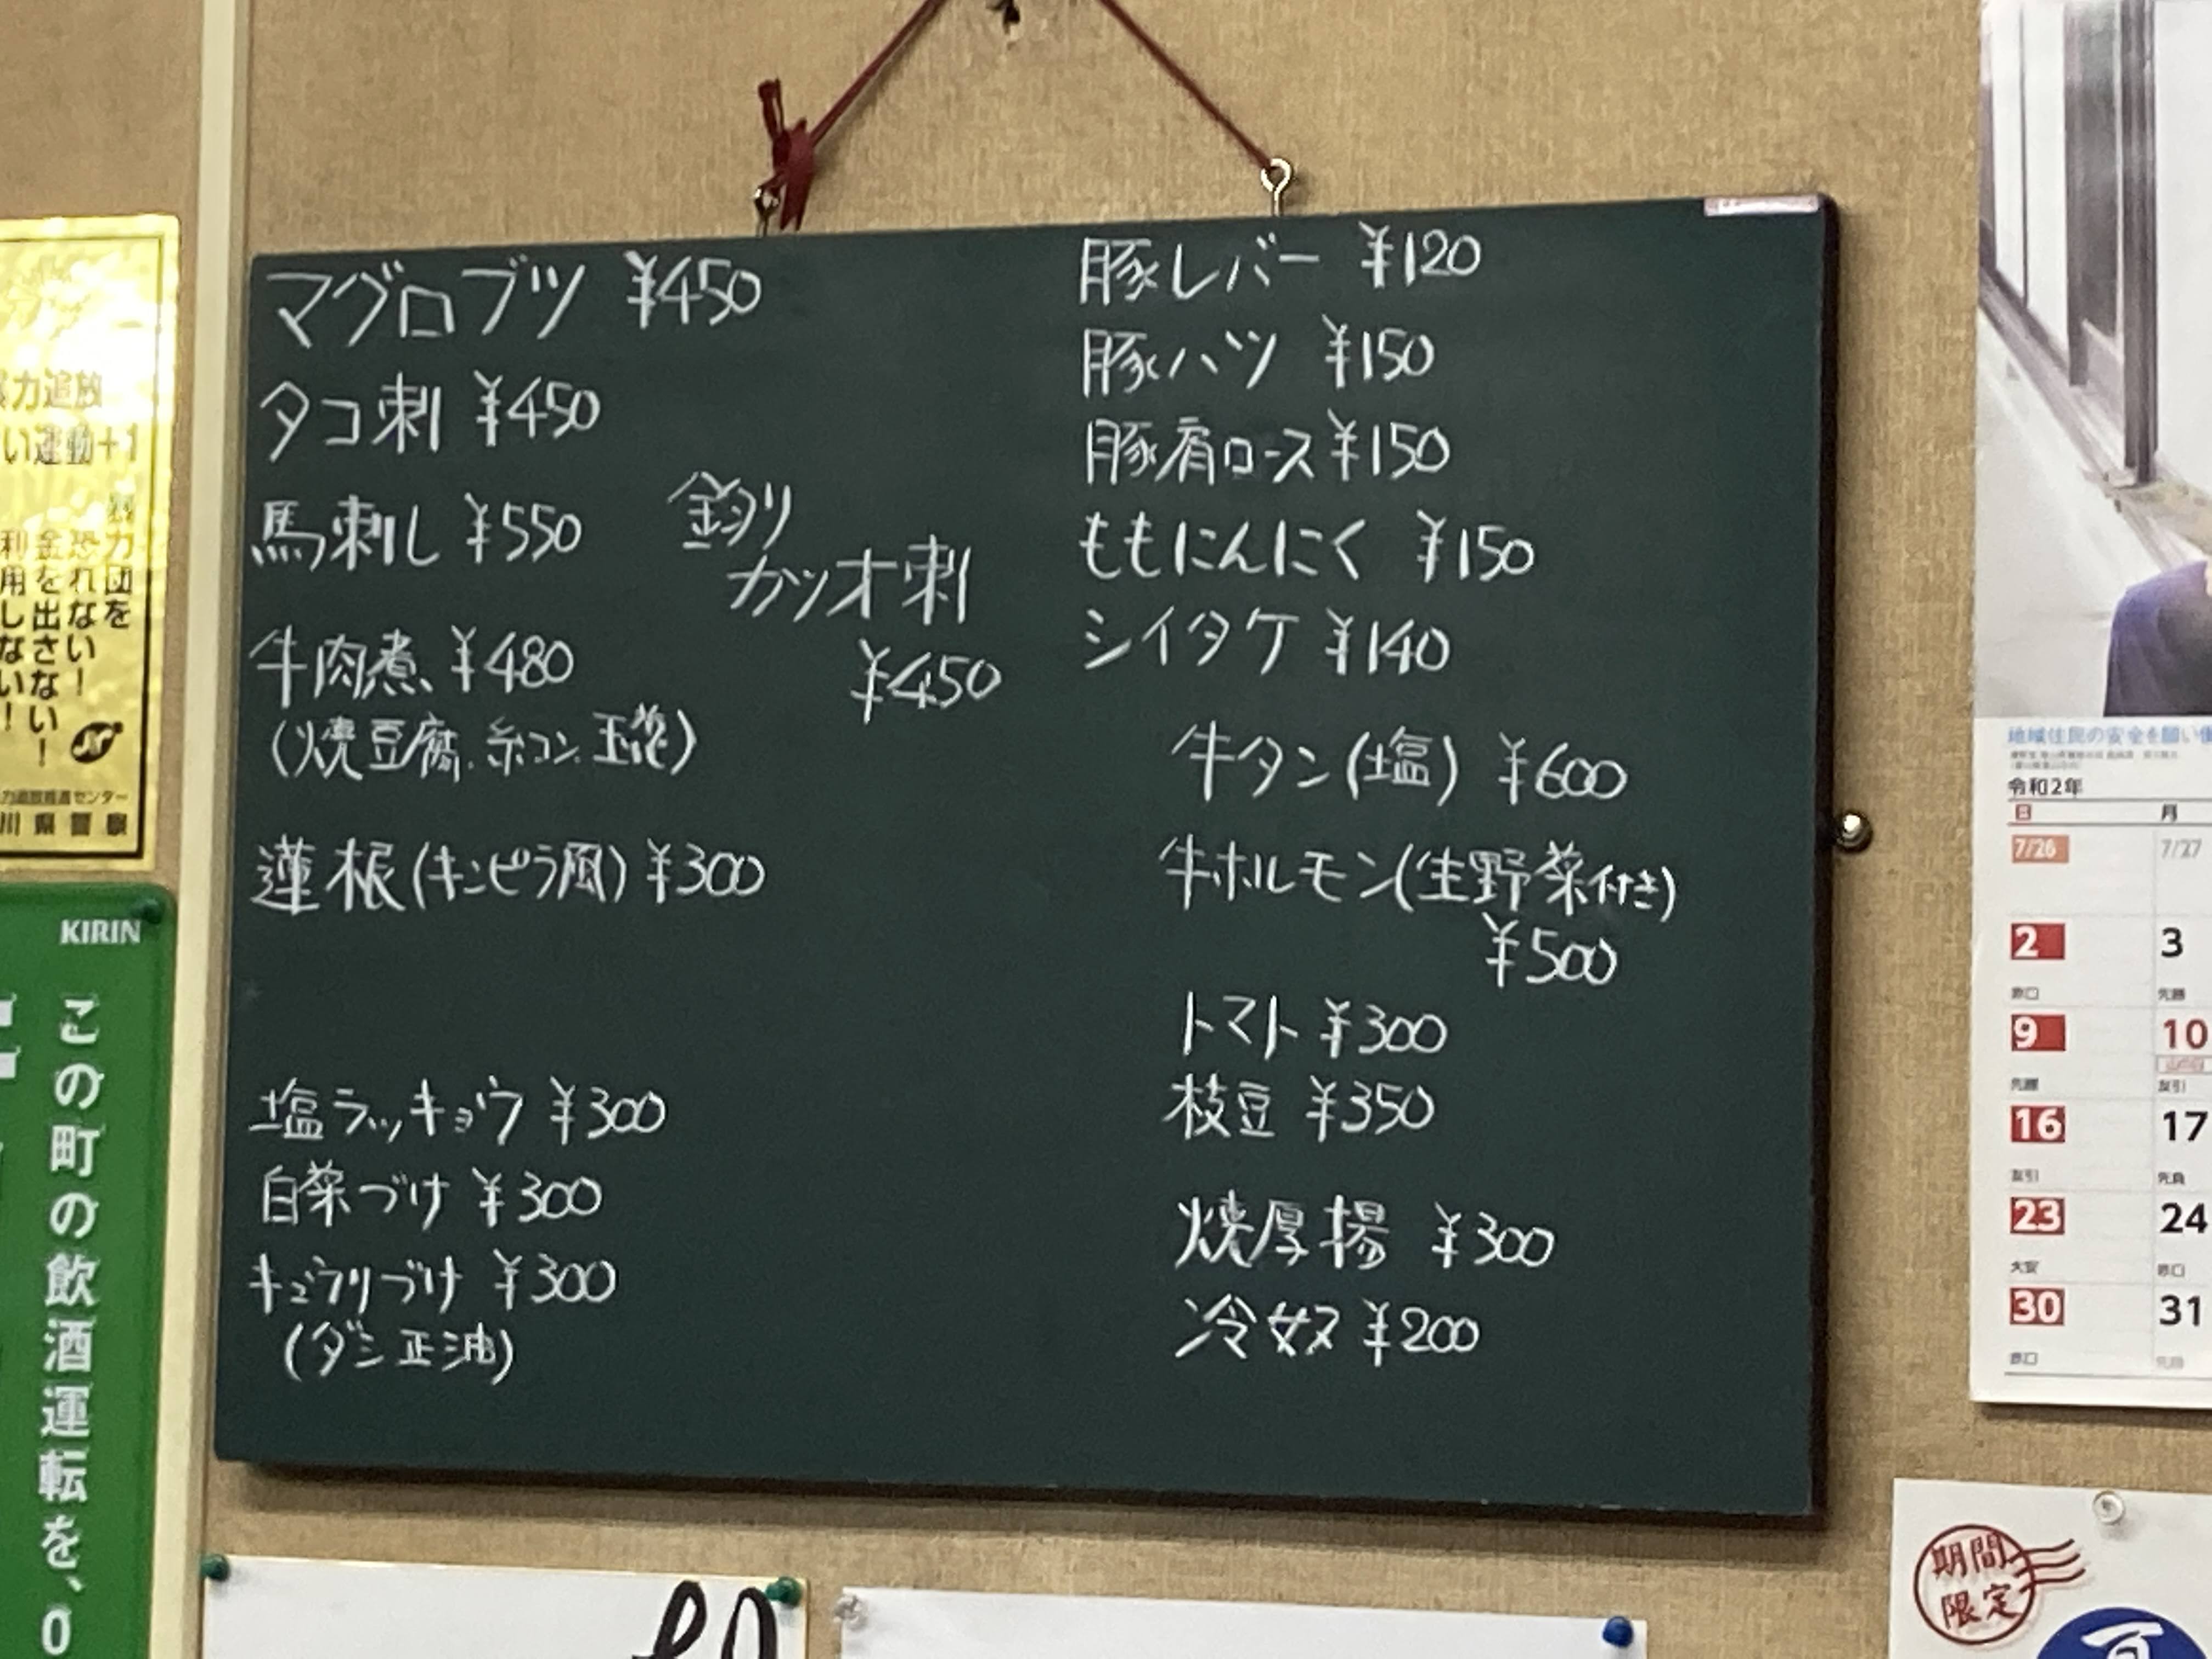 マグロブツ ¥450
タコ刺 ¥450
馬刺し ¥550
釣り
カツオ刺
¥450
牛肉煮 ¥480
(焼豆腐、糸コン、玉葱)
蓮根(キンピラ風) ¥300
塩ラッキョウ ¥300
白菜づけ ¥300
キュウリづけ ¥300
(ダシ正油)
豚レバー ¥120
豚ハツ ¥150
豚肩ロース ¥150
ももにんにく ¥150
シイタケ ¥140
牛タン(塩) ¥600
牛ホルモン(生野菜付き)
¥500
トマト ¥300
枝豆 ¥350
焼厚揚 ¥300
冷奴 ¥200
力追放
い運動+1
力団を
恐れない!
金を出さない!
利用しない!
川県警察
KIRIN
この町の飲酒運転を、0
地域住民の安全を願い
令和2年
日 月
7/26 7/27
2 3
赤口 先勝
9 10
先勝 友引
16 17
友引 先負
23 24
大安 赤口
30 31
赤口 先勝
期間
限定